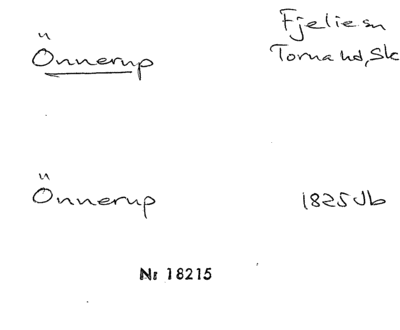 Önnerup
Fjelie sn
Torna hd, Sk
Önnerup
1825 Jb
Nr 18215